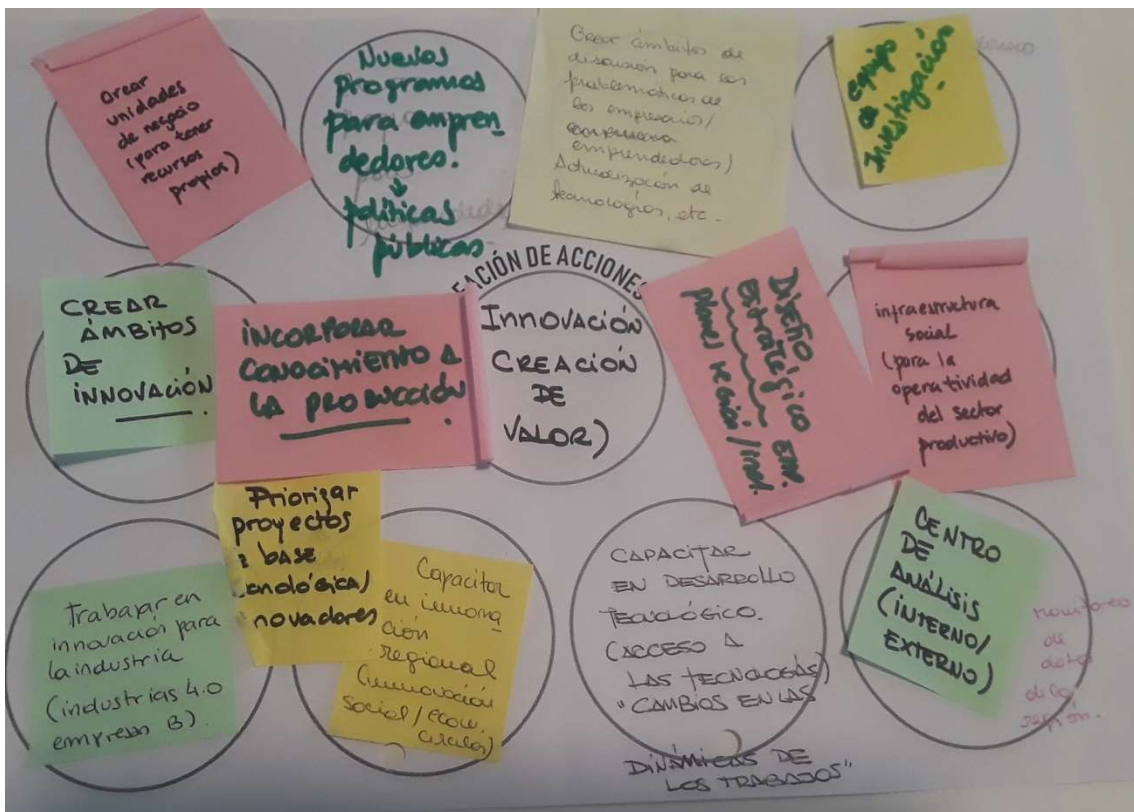 crear
unidades
de negocio
(para tener
recursos
propios)
Nuevos
programas
para empren
dedores.
↓
políticas
públicas
Crear ámbitos de
discusión para las
problemáticas de
los empresarios/
emprendedores)
Actualización de
tecnologías, etc.
equipo
de
Investigación
CREAR
ÁMBITOS
DE
INNOVACIÓN
INCORPORAR
CONOCIMIENTO A
LA PRODUCCIÓN.
EACIÓN DE ACCIONES
INNOVACIÓN
CREACIÓN
DE
VALOR)
DISEÑO
ESTRATÉGICO
planes región/
infraestructura
social
(para la
operatividad
del sector
productivo)
Priorizar
proyectos
base
nológica/
novadores
Trabajar en
innovación para
la industria
(industrias 4.0
empresas B).
Capacitar
en innova
ción
regional
(innovación
social/econ.
circular)
CAPACITAR
EN DESARROLLO
TECNOLÓGICO.
(ACCESO A
LAS TECNOLOGÍAS)
"CAMBIOS EN LAS
DINÁMICAS DE
LOS TRABAJOS"
CENTRO
DE
ANÁLISIS
(INTERNO/
EXTERNO)
monitoreo
de
datos
de la
región.